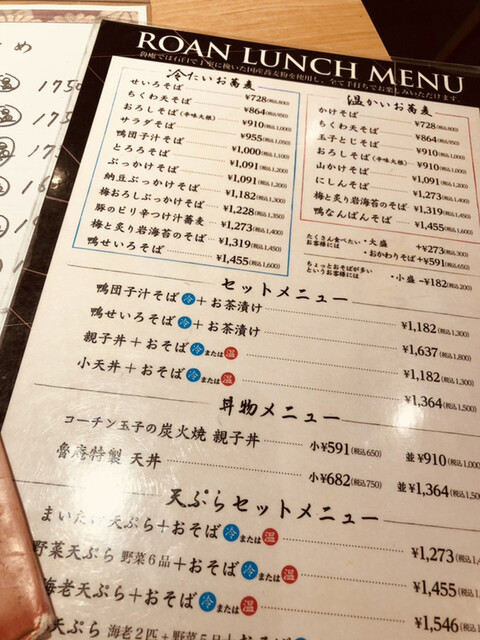 ROAN LUNCH MENU
魯庵では石臼で丁寧に挽いた国産蕎麦粉を使用し、全て手打ちでお楽しみいただけます
冷たいお蕎麦
せいろそば ¥728(税込800)
ちくわ天そば ¥864(税込950)
おろしそば(辛味大根) ¥910(税込1,000)
サラダそば ¥955(税込1,050)
鴨団子汁そば ¥1,000(税込1,100)
とろろそば ¥1,091(税込1,200)
ぶっかけそば ¥1,091(税込1,200)
納豆ぶっかけそば ¥1,182(税込1,300)
梅おろしぶっかけそば ¥1,228(税込1,350)
豚のピリ辛つけ汁蕎麦 ¥1,273(税込1,400)
梅と炙り岩海苔のそば ¥1,319(税込1,450)
鴨せいろそば ¥1,455(税込1,600)
温かいお蕎麦
かけそば ¥728(税込800)
ちくわ天そば ¥864(税込950)
玉子とじそば ¥910(税込1,000)
おろしそば(辛味大根) ¥910(税込1,000)
山かけそば ¥1,091(税込1,200)
にしんそば ¥1,182(税込1,300)
梅と炙り岩海苔のそば ¥1,319(税込1,450)
鴨なんばんそば ¥1,455(税込1,600)
たくさん食べたいお客様には ・大盛 +¥273(税込300)
・おかわりそば +¥591(税込650)
ちょっとおそばが多いというお客様には ・小盛 −¥182(税込200)
セットメニュー
鴨団子汁そば 冷 + お茶漬け ¥1,182(税込1,300)
鴨せいろそば 冷 + お茶漬け ¥1,637(税込1,800)
親子丼 + おそば 冷 または 温 ¥1,182(税込1,300)
小天丼 + おそば 冷 または 温 ¥1,364(税込1,500)
丼物メニュー
コーチン玉子の炭火焼 親子丼 小¥591(税込650) 並 ¥910(税込1,000
魯庵特製 天丼 小¥682(税込750) 並 ¥1,364(税込1,500
天ぷらセットメニュー
まいたけ天ぷら+おそば 冷 または 温 ¥1,273(税込1,4
野菜天ぷら 野菜6品+おそば 冷 または 温 ¥1,455(税込
海老天ぷら+おそば 冷 または 温 ¥1,546(税込
天ぷら 海老2匹+野菜5品+おそば
め
温 1750
温 175